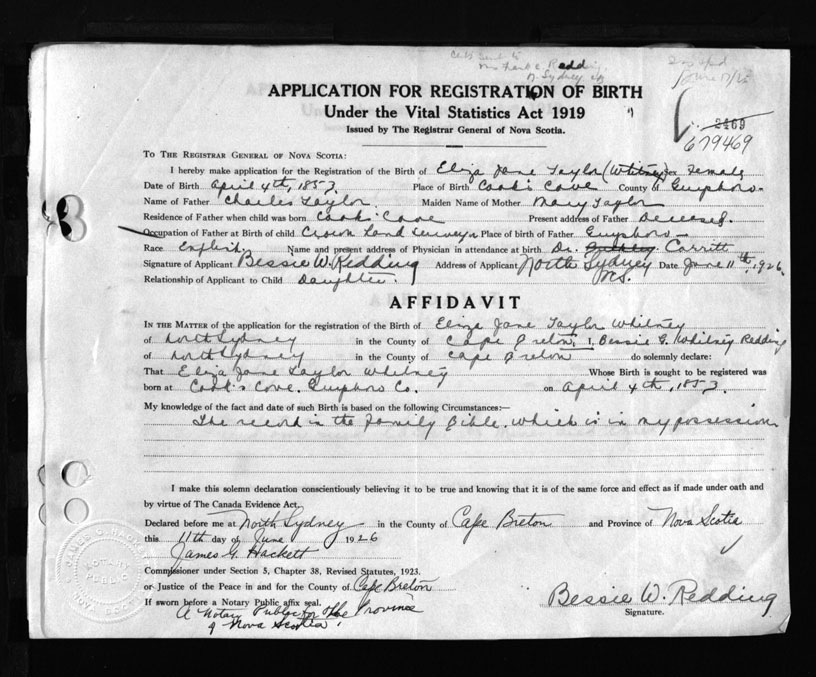 Redding
N. Sydney
APPLICATION FOR REGISTRATION OF BIRTH
Under the Vital Statistics Act 1919
Issued by The Registrar General of Nova Scotia.
2469
679469
TO THE REGISTRAR GENERAL OF NOVA SCOTIA:
I hereby make application for the Registration of the Birth of Eliza Jane Taylor (Whitney) Sex Female
Date of Birth April 4th, 1853. Place of Birth Cook's Cove County of Guysboro-
Name of Father Charles Taylor. Maiden Name of Mother Mary Taylor
Residence of Father when child was born Cook's Cove Present address of Father Deceased.
Occupation of Father at Birth of child Crown Land Surveyor Place of birth of Father Guysboro-
Race English. Name and present address of Physician in attendance at birth Dr. Corritt
Signature of Applicant Bessie W. Redding Address of Applicant North Sydney Date June 11th, 1926.
N.S.
Relationship of Applicant to Child Daughter.
AFFIDAVIT
IN THE MATTER of the application for the registration of the Birth of Eliza Jane Taylor Whitney
of North Sydney in the County of Cape Breton, I, Bessie G. Whitney Redding
of North Sydney in the County of Cape Breton do solemnly declare:
That Eliza Jane Taylor Whitney Whose Birth is sought to be registered was
born at Cook's Cove. Guysboro Co. on April 4th, 1853.
My knowledge of the fact and date of such Birth is based on the following Circumstances:—
The record in the Family Bible. which is in my possession
I make this solemn declaration conscientiously believing it to be true and knowing that it is of the same force and effect as if made under oath and
by virtue of The Canada Evidence Act.
Declared before me at North Sydney in the County of Cape Breton and Province of Nova Scotia
this 11th day of June 1926
James G. Hackett
Commissioner under Section 5, Chapter 38, Revised Statutes, 1923.
or Justice of the Peace in and for the County of Cape Breton
If sworn before a Notary Public affix seal.
A Notary Public for the Province
of Nova Scotia.
Bessie W. Redding
Signature.